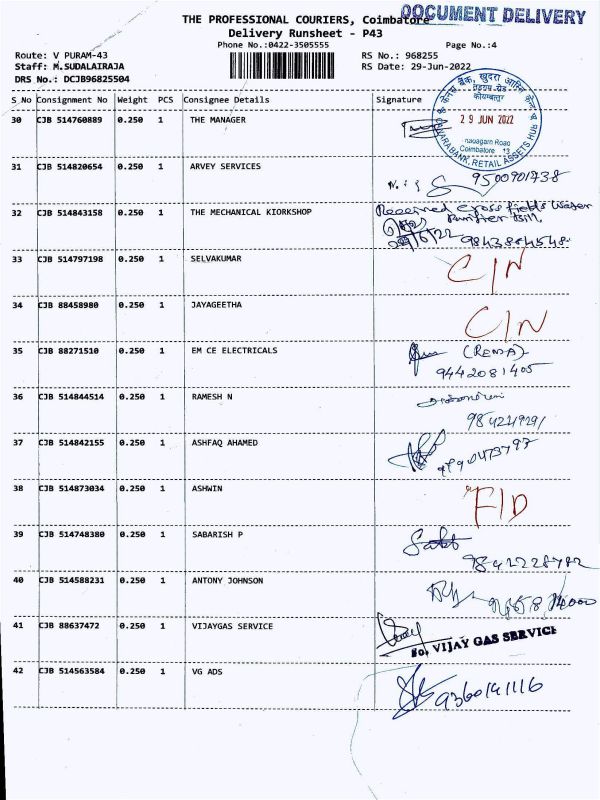 DOCUMENT DELIVERY
THE PROFESSIONAL COURIERS, Coimbatore
Delivery Runsheet - P43
Phone No.:0422-3505555
Page No.:4
Route: V PURAM-43
RS No.: 968255
Staff: M.SUDALAIRAJA
RS Date: 29-Jun-2022
DRS No.: DCJB96825504
S_No Consignment No Weight PCS Consignee Details Signature
30 CJB 514760889 0.250 1 THE MANAGER
29 JUN 2022
Coimbatore 13
RETAIL ASSETS HUB
31 CJB 514820654 0.250 1 ARVEY SERVICES
9500901738
32 CJB 514843158 0.250 1 THE MECHANICAL KIORKSHOP
Received cross fields water
purifier Bill
9843884548
33 CJB 514797198 0.250 1 SELVAKUMAR
C/N
34 CJB 88458980 0.250 1 JAYAGEETHA
C/N
35 CJB 88271510 0.250 1 EM CE ELECTRICALS
(REMA)
9442081405
36 CJB 514844514 0.250 1 RAMESH N
37 CJB 514842155 0.250 1 ASHFAQ AHAMED
38 CJB 514873034 0.250 1 ASHWIN
F/D
39 CJB 514748380 0.250 1 SABARISH P
9842228782
40 CJB 514588231 0.250 1 ANTONY JOHNSON
41 CJB 88637472 0.250 1 VIJAYGAS SERVICE
For VIJAY GAS SERVICE
42 CJB 514563584 0.250 1 VG ADS
9360141116